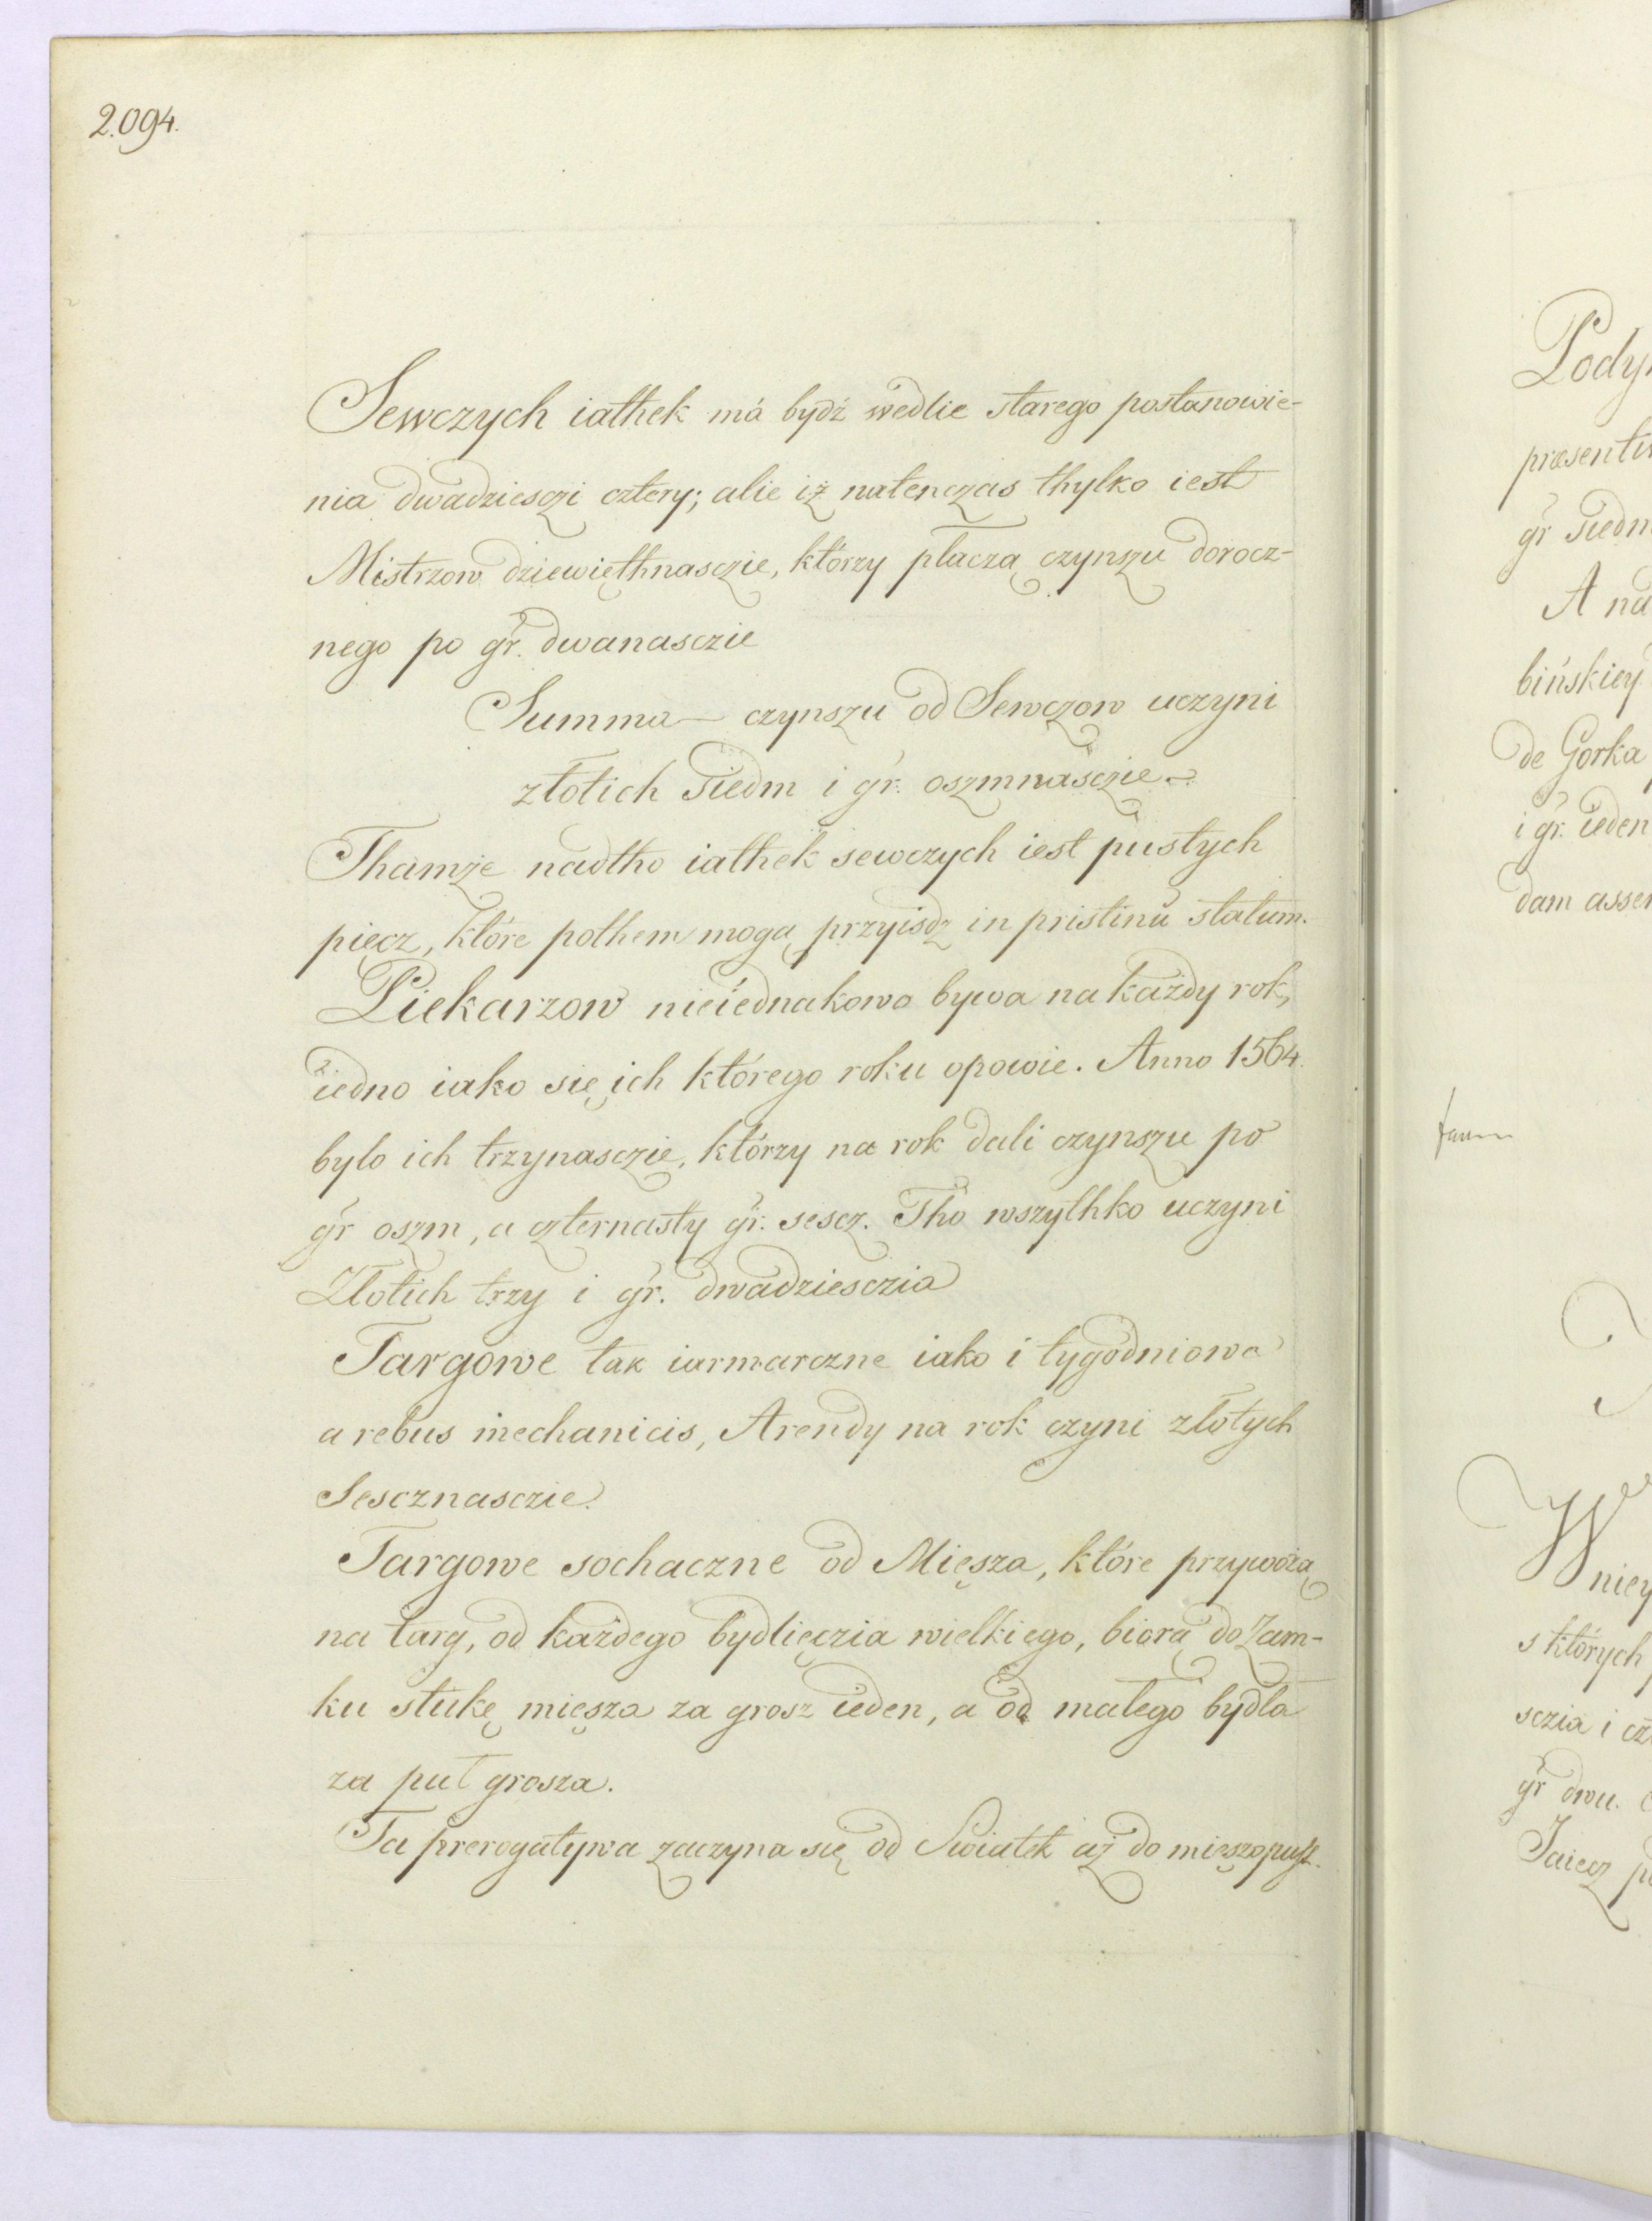 2.094.
Sewczych iathek má bydź wedlie starego postanowie-
nia dwadziesczi cztery; alie iż natenczas thylko iest
Mistrzow dziewięthnasczie, którzy płaczą czynszu dorocz-
nego po gr. dwanasczie
Summa czynszu od Sewczow uczyni
złotich siedm i gr. oszmnasczie
Thamże nadtho iathek sewczych iest pustych
pięcz, które pothem mogą przyisdz in pristinū statum.
Piekarzow nieiednakowo bywa na każdy rok,
iedno iako się ich którego roku opowie. Anno 1564
było ich trzynasczie, którzy na rok dali czynszu po
gr oszm, a czternasty gr. sescz. Tho wszythko uczyni
Złotich trzy i gr. dwadziesczia
Targowe tak iarmarczne iako i tygodniowe
a rebus mechanicis, Arendy na rok czyni złotych
Sescznasczie.
Targowe sochaczne od Mięsza, które przywożą
na targ, od każdego bydlięczia wielkiego, biorą do Zam-
ku stukę mięsza za grosz ieden, a od małego bydła
za puł grosza.
Ta prerogatywa zaczyna się od Swiatek aż do mięszopust.
Pody
præsenti
gr siedm
A na
bińskiey
de Gorka
i gr. ieden
dam asser
W niey
s których
sczia i cz
gr dwu.
Jaiecz p